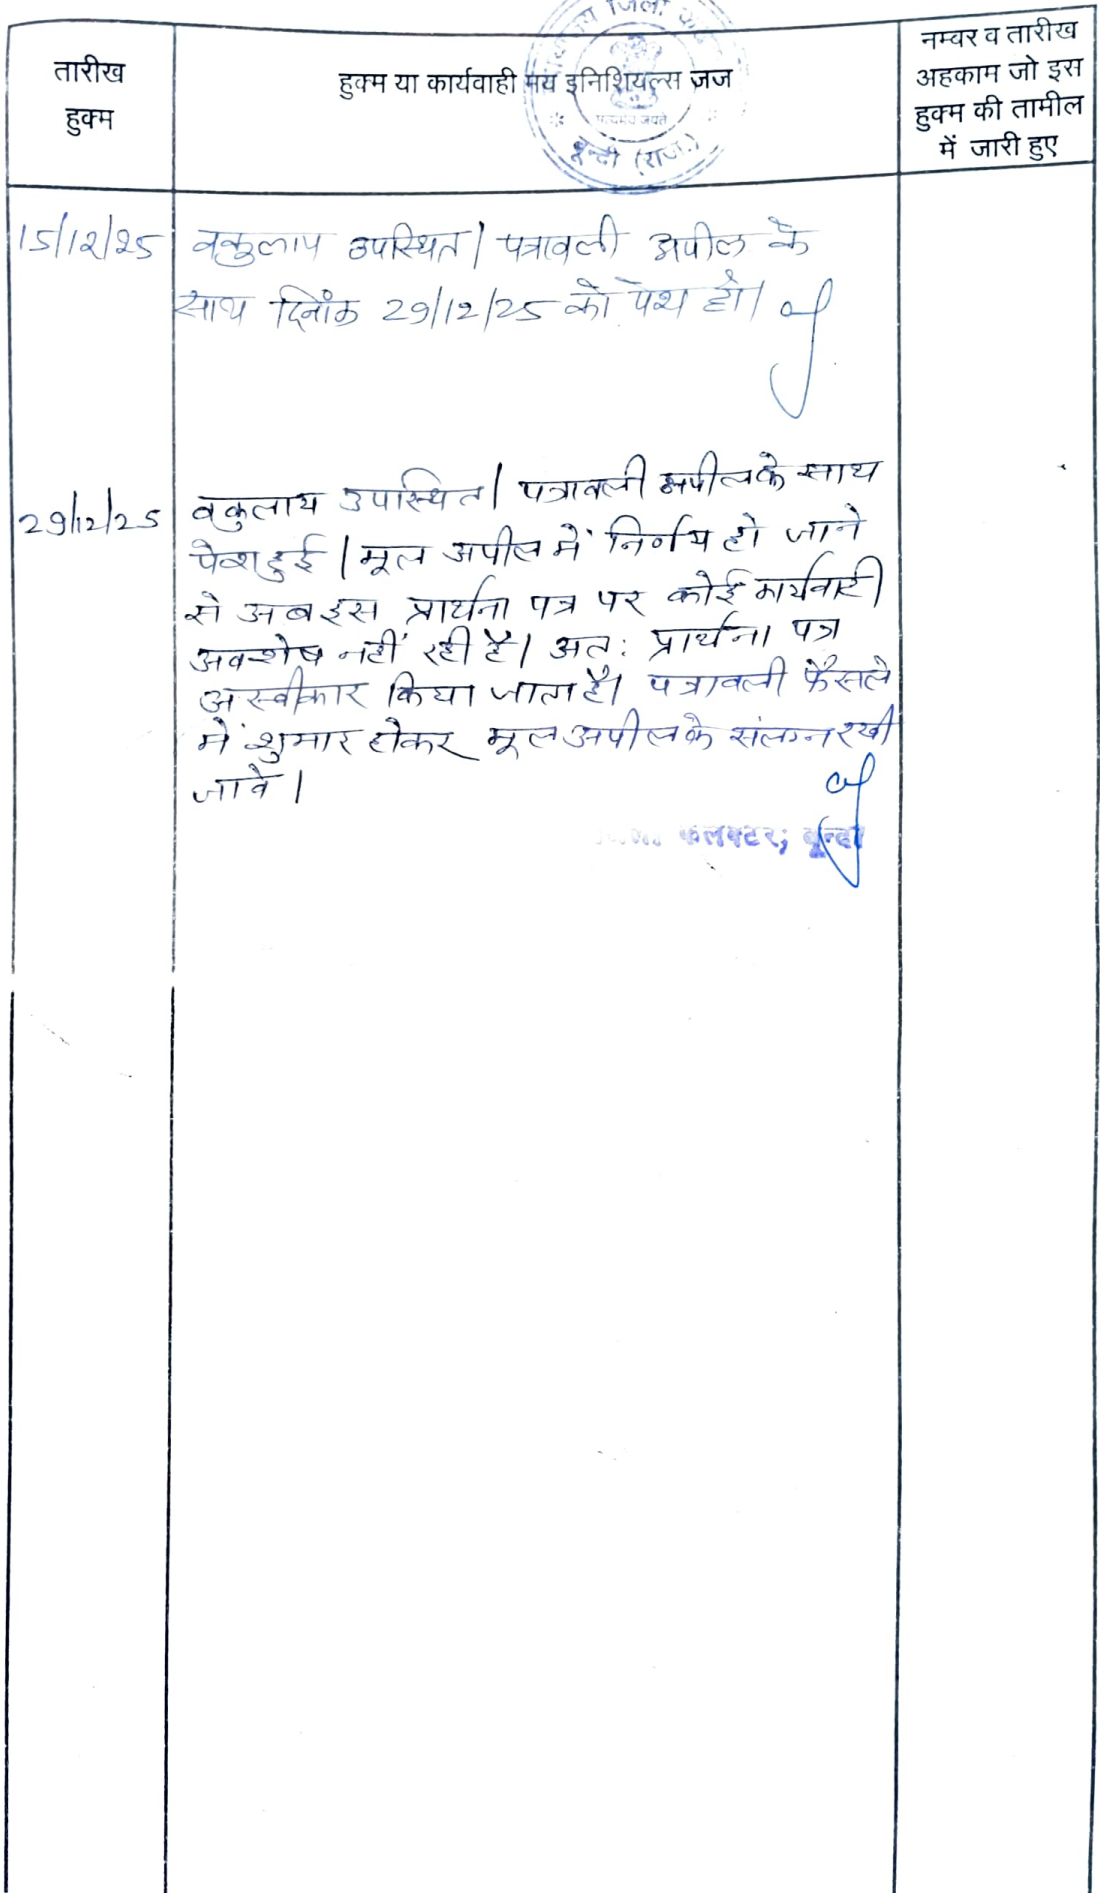 जिला
सत्यमेव जयते
बून्दी (राज.)
तारीख
हुक्म
हुक्म या कार्यवाही मय इनिशियल्स जज
नम्बर व तारीख
अहकाम जो इस
हुक्म की तामील
में जारी हुए
15/12/25
वकुलाय उपस्थित। पत्रावली अपील के
साथ दिनांक 29/12/25 को पेश हो।
29/12/25
वकुलाय उपस्थित। पत्रावली अपील के साथ
पेश हुई। मूल अपील में निर्णय हो जाने
से अब इस प्रार्थना पत्र पर कोई कार्यवाही
अवशेष नहीं रही है। अत: प्रार्थना पत्र
अस्वीकार किया जाता है। पत्रावली फैसले
में शुमार होकर मूल अपील के संलग्न रखी
जावे।
कलक्टर, बून्दी